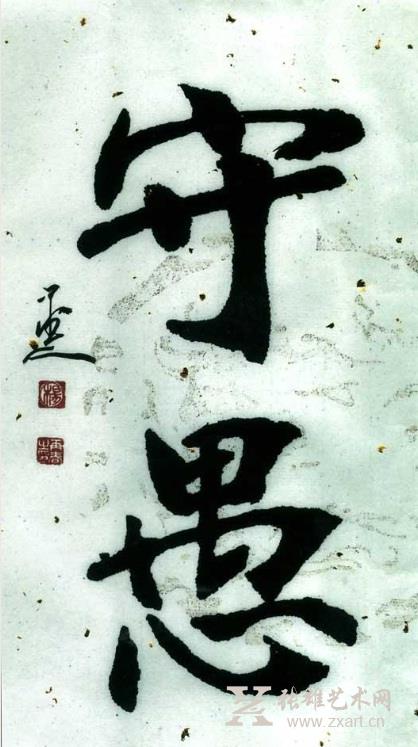 守愚
张雄艺术网
www.zxart.cn